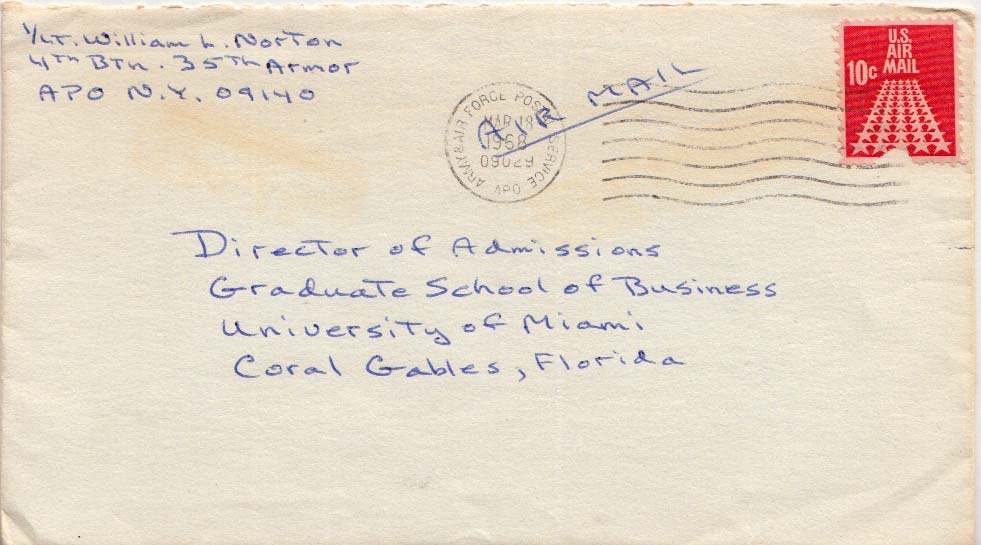 1/Lt. William L. Norton
4th Btn. 35th Armor
APO N.Y. 09140
AIR MAIL
ARMY & AIR FORCE POSTAL SERVICE
MAR 18
1968
09029
APO
U.S.
AIR
MAIL
10c
Director of Admissions
Graduate School of Business
University of Miami
Coral Gables, Florida